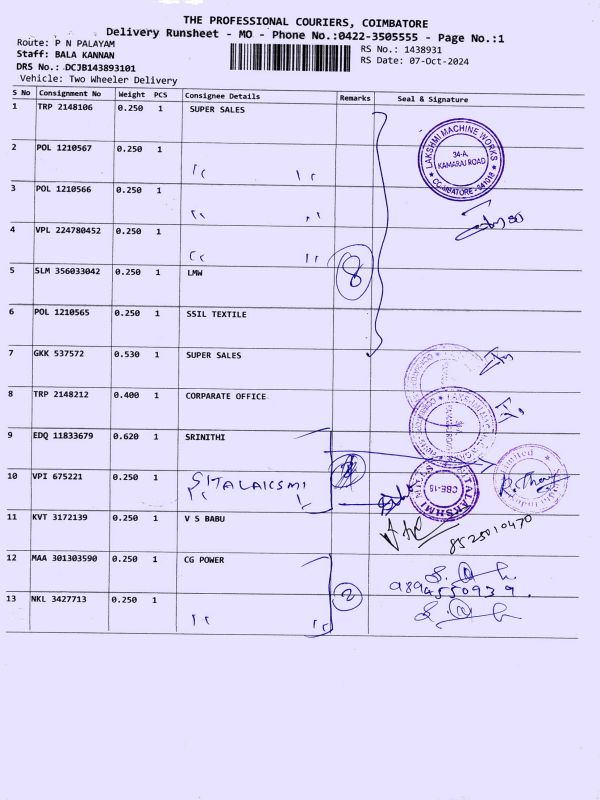 THE PROFESSIONAL COURIERS, COIMBATORE
Delivery Runsheet - MO - Phone No.:0422-3505555 - Page No.:1
Route: P N PALAYAM
RS No.: 1438931
Staff: BALA KANNAN
RS Date: 07-Oct-2024
DRS No.: DCJB143893101
Vehicle: Two Wheeler Delivery
S No Consignment No Weight PCS Consignee Details Remarks Seal & Signature
1 TRP 2148106 0.250 1 SUPER SALES
LAKSHMI MACHINE WORKS
34-A,
KAMARAJ ROAD
COIMBATORE-641018
2 POL 1210567 0.250 1
" "
3 POL 1210566 0.250 1
" "
4 VPL 224780452 0.250 1
" "
8
5 SLM 356033042 0.250 1 LMW
6 POL 1210565 0.250 1 SSIL TEXTILE
7 GKK 537572 0.530 1 SUPER SALES
8 TRP 2148212 0.400 1 CORPARATE OFFICE
9 EDQ 11833679 0.620 1 SRINITHI
10 VPI 675221 0.250 1 SITALAKSMI
" "
SITALAKSHMI
CBE-15
11 KVT 3172139 0.250 1 V S BABU
8525010470
12 MAA 301303590 0.250 1 CG POWER
2
9894550939.
13 NKL 3427713 0.250 1
" "